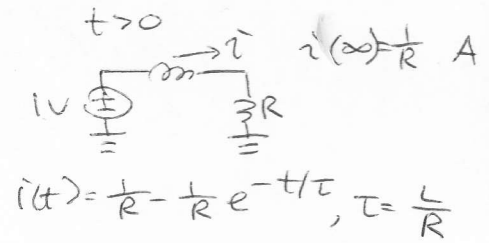 t>0
→i
i(∞)=1/R A
1V
R
i(t)=1/R-1/R e^-t/τ, τ=L/R